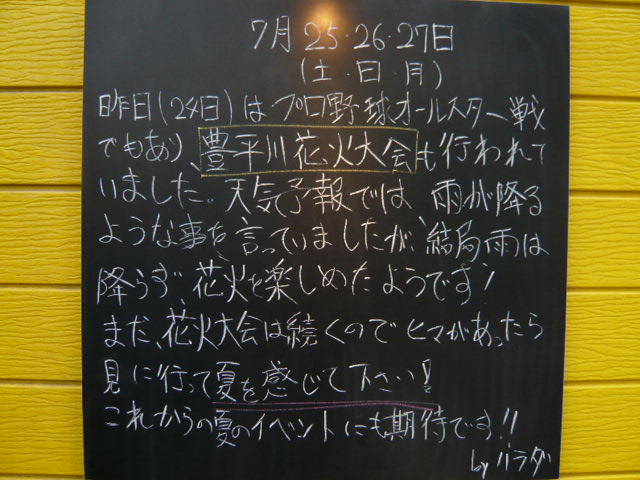 7月 25・26・27日
(土・日・月)
昨日(24日)は プロ野球オールスター戦
でもあり、豊平川花火大会も行われて
いました。天気予報では 雨が降る
ような事を言っていましたが、結局雨は
降らず 花火を楽しめたようです!
まだ、花火大会は続くので ヒマがあったら
見に行って夏を感じて下さい!
これからの夏のイベントにも期待です!!
by パラダ